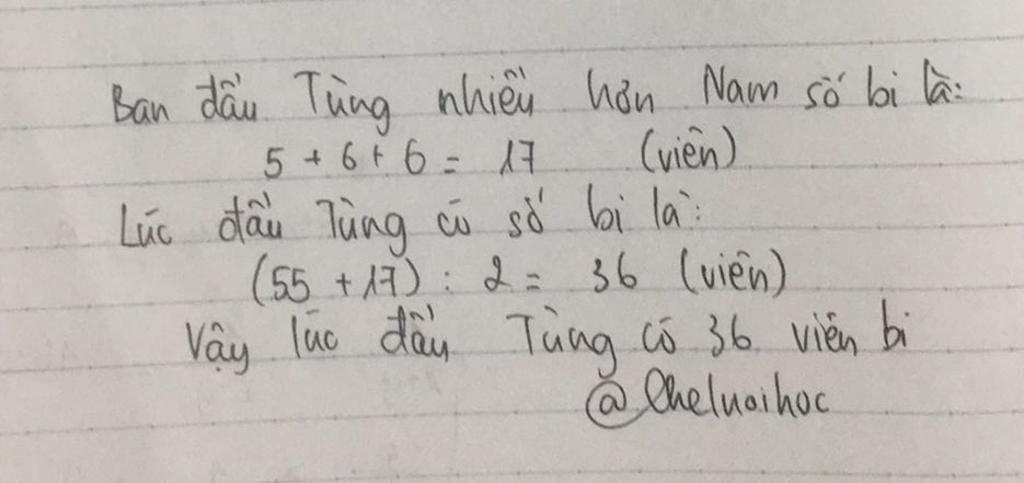 Ban đầu Tùng nhiều hơn Nam số bi là:
5 + 6 + 6 = 17 (viên)
Lúc đầu Tùng có số bi là:
(55 + 17) : 2 = 36 (viên)
Vậy lúc đầu Tùng có 36 viên bi
@Cheluoihoc